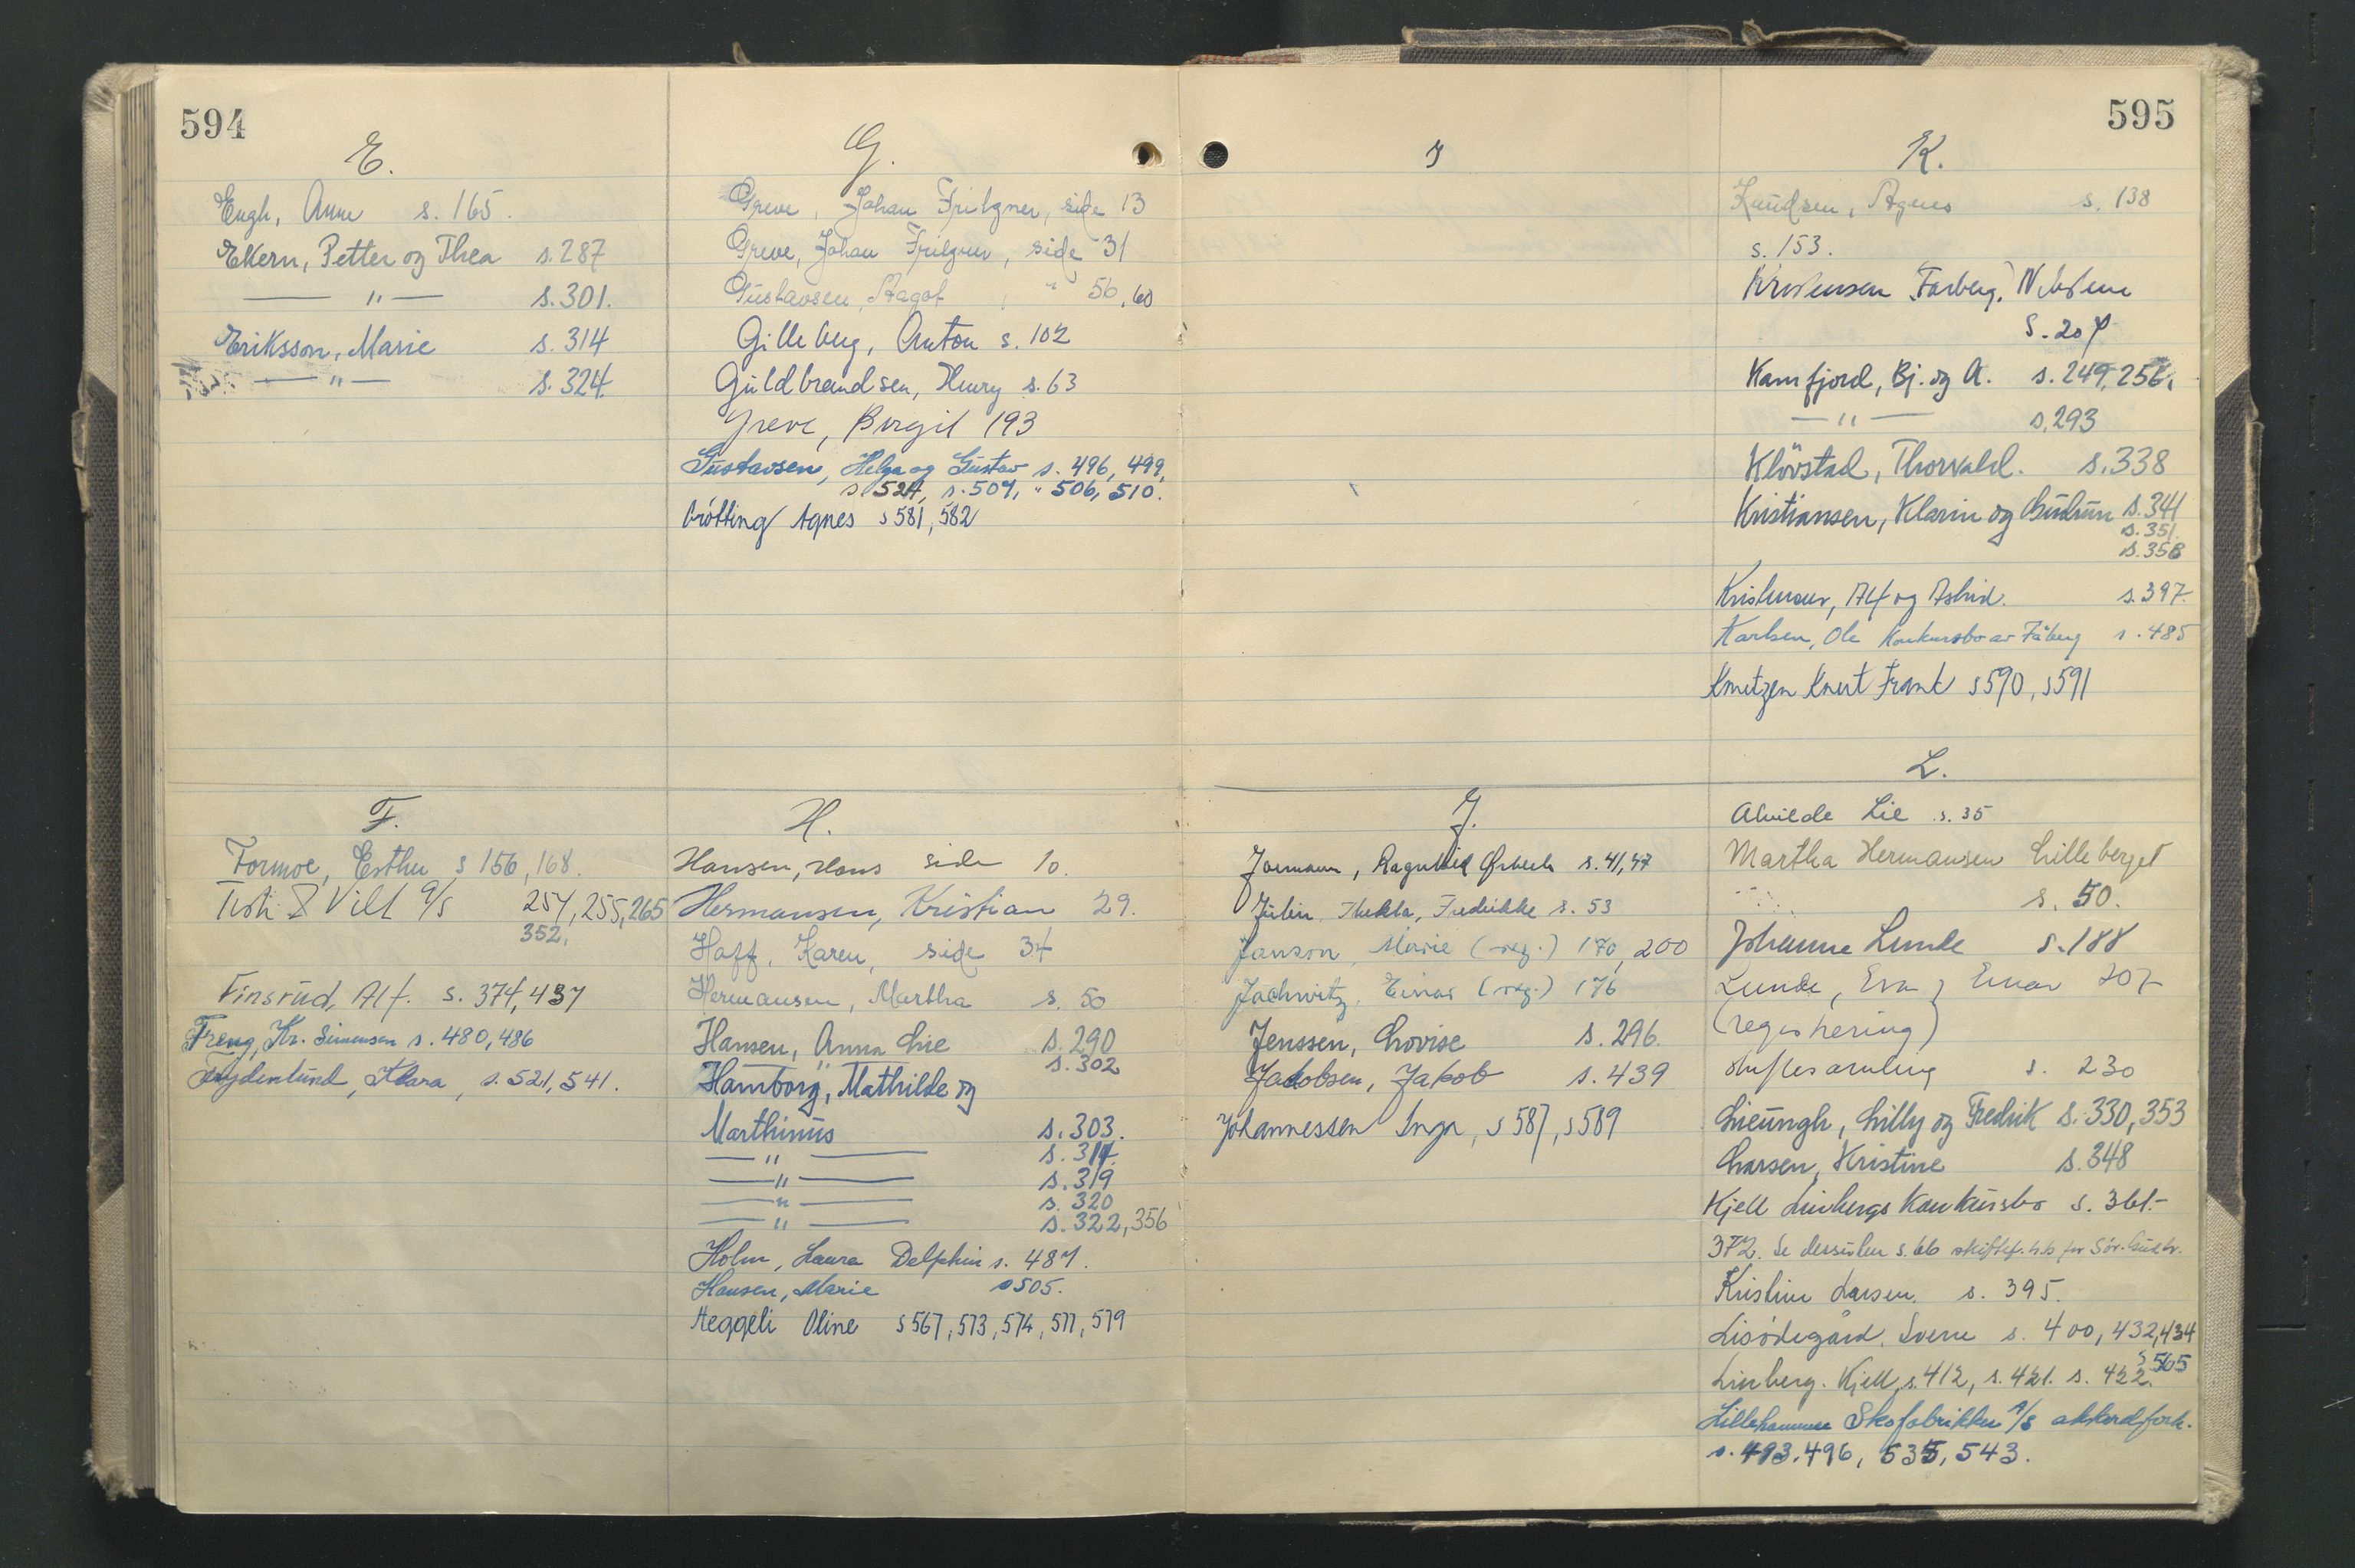 594
E.
Engh, Anne s. 165.
Ekern, Petter og Thea s. 287
— " — s. 301.
Eriksson, Marie s. 314
— " — s. 324.
F.
Formoe, Esther s 156, 168.
Fisk & Vilt A/S 254, 255, 265
352.
Finsrud, Alf. s. 374, 437
Freng, Kr. Simensen s. 480, 486
Frydenlund, Klara, s. 521, 541.
G.
Greve, Johan Fritzner, side 13
Greve, Johan Fritzner, side 31
Gustavsen, Aagot, " 56, 60
Gilleberg, Anton s. 102
Guldbrandsen, Henry s. 63
Greve, Birgit 193
Gustavsen, Helga og Gustav s. 496, 499,
s 524, s. 504, " 506, 510.
Grötting Agnes s 581, 582
H.
Hansen, Hans side 10.
Hermansen, Kristian 29.
Haff, Karen, side 34
Hermansen, Martha s. 50
Hansen, Anna Lie s. 290
— " — s. 302
Hamborg, Mathilde og
Marthinus s. 303.
— " — s. 314.
— " — s. 319
— " — s. 320
— " — s. 322, 356
Holm, Laura Delphin s. 487.
Hansen, Marie s 505.
Heggeli Oline s 567, 573, 574, 577, 579
595
I
J.
Jormann, Ragnhild s. 41, 47
Thekla, Fredrikke s. 53
Janson, Marie (reg.) 170, 200
Jachwitz, Einar (reg.) 176
Jenssen, Lovise s. 296.
Jakobsen, Jakob s. 439
Johannessen Inga, s 587, s 589
K.
Knudsen, Agnes s. 138
s. 153.
Kristensen Faaberg,
s. 207
Kamfjord, Bj. og A. s. 249, 256,
— " — s. 293
Klövstad, Thorvald. s. 338
Kristiansen, Klarin og Gudrun s. 341
s. 351.
s. 358
Alf og Astrid. s. 397.
Karlsen, Ole Konkursbo av Fåberg s. 485
Knutzen Knut Frank s 590, s 591
L.
Alvilde Lie s. 35
Martha Hermansen Lilleberget
s. 50.
Johanne Lunde s. 188
Lunde, Eva & Einar 207
(registrering)
skiftesamling s. 230
Lieungh, Lilly og Fredrik s. 330, 353
Larsen, Kristine s. 348
Kjell Linbergs Konkursbo s. 361.-
372. Se dessuten s. 66 skiftef. h.b for Sör-Gudbr.
Kristine Larsen. s. 395.
Lisödegård, Sverre s. 400, 432, 434
s 565
Linberg. Kjell, s. 412, s. 421. s. 422.
Lillehammer Skofabrikker A/S akkordforh.
s. 493. 496, 535, 543.